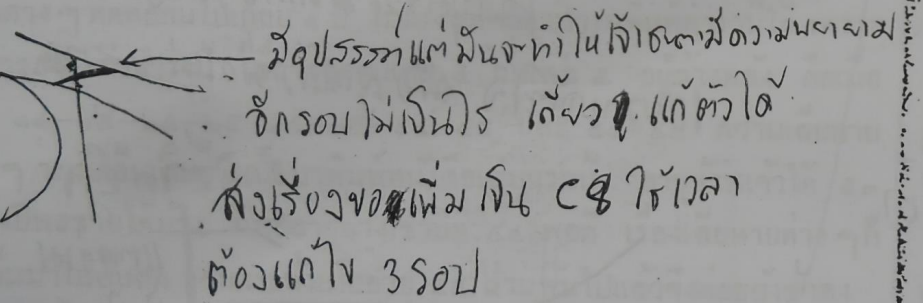 มีอุปสรรคแต่มันจะทำให้เจ้าชะตามีความพยายาม
อีกรอบไม่เป็นไร เดี๋ยว แก้ตัวได้
ส่งเรื่องขอเพิ่มเป็น C8 ใช้เวลา
ต้องแก้ไข 3 รอบ